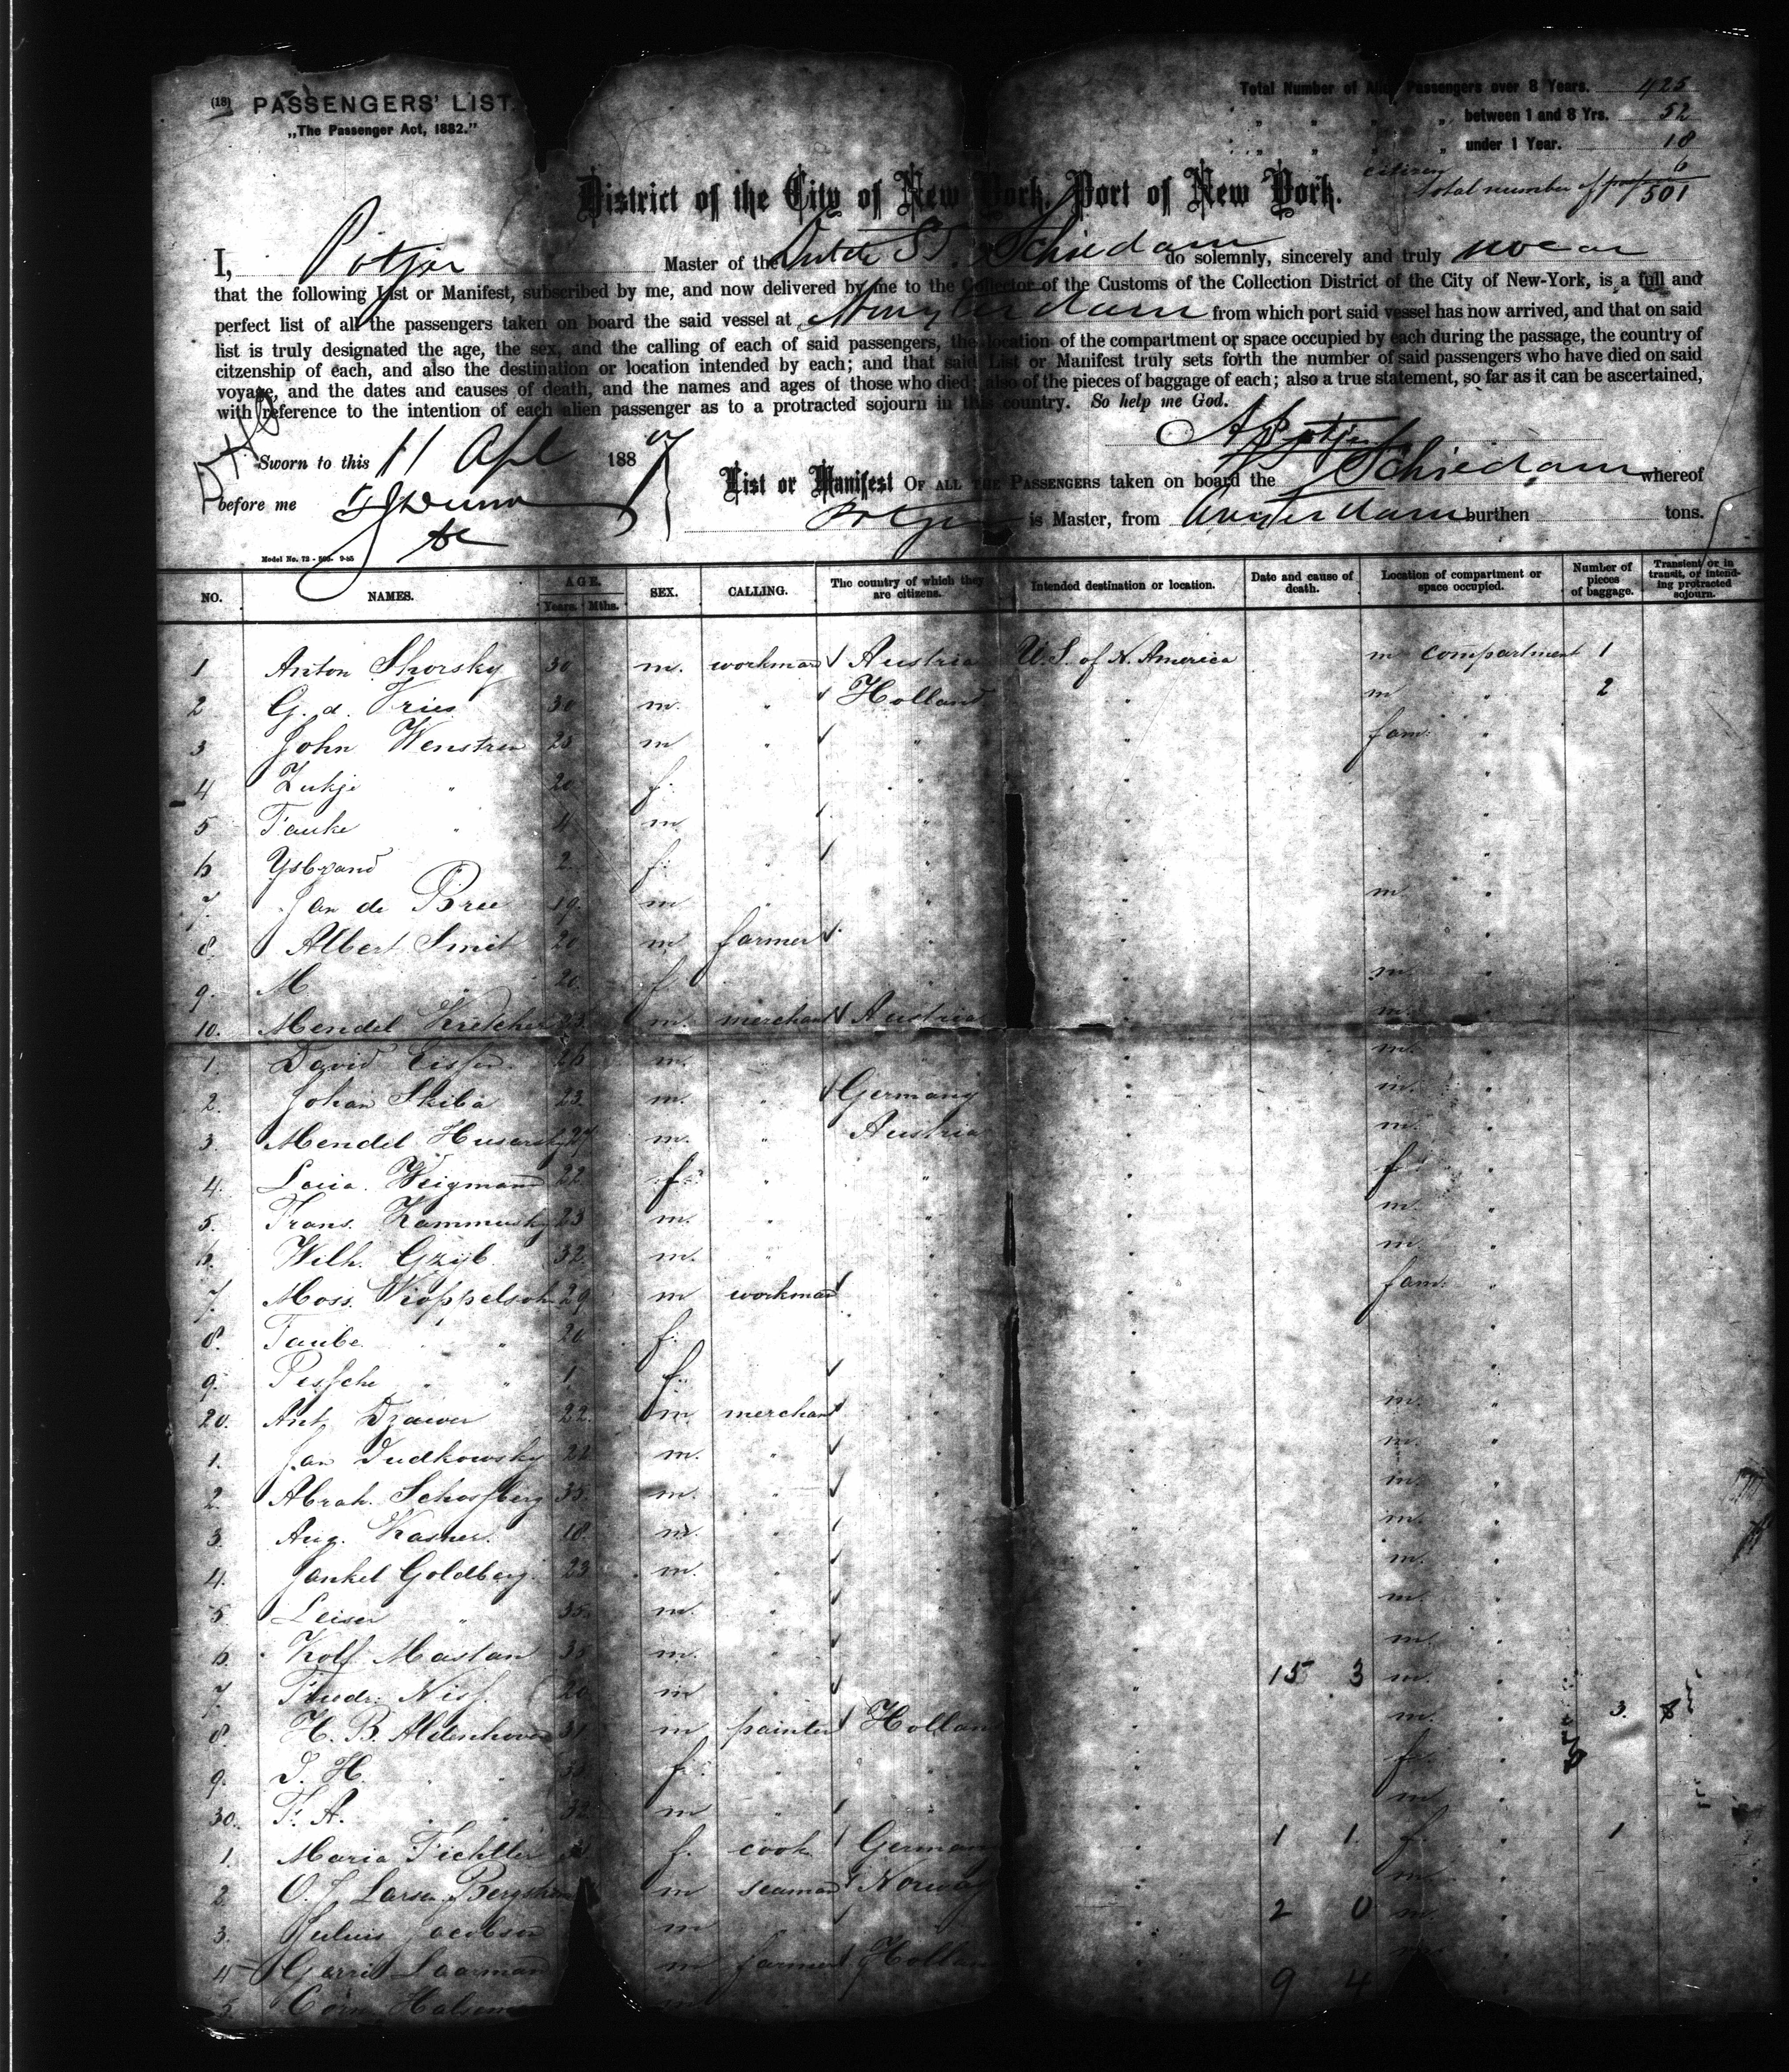 (18) PASSENGERS' LIST.
„The Passenger Act, 1882."
Total Number of Alien Passengers over 8 Years. 425
" " " " between 1 and 8 Yrs. 52
" " " " under 1 Year. 18
citizen 6
Total number of 501
District of the City of New York, Port of New York.
I, Potjer Master of the Dutch S.S. Schiedam do solemnly, sincerely and truly swear
that the following List or Manifest, subscribed by me, and now delivered by me to the Collector of the Customs of the Collection District of the City of New-York, is a full and
perfect list of all the passengers taken on board the said vessel at Amsterdam from which port said vessel has now arrived, and that on said
list is truly designated the age, the sex, and the calling of each of said passengers, the location of the compartment or space occupied by each during the passage, the country of
citzenship of each, and also the destination or location intended by each; and that said List or Manifest truly sets forth the number of said passengers who have died on said
voyage, and the dates and causes of death, and the names and ages of those who died; also of the pieces of baggage of each; also a true statement, so far as it can be ascertained,
with reference to the intention of each alien passenger as to a protracted sojourn in this country. So help me God.
A Potjer
Sworn to this 11 Apl 1887
before me
List or Manifest OF ALL THE PASSENGERS taken on board the Schiedam whereof
Potjer is Master, from Amsterdam burthen tons.
Model No. 72
NO. NAMES. AGE. Years. Mths. SEX. CALLING. The country of which they are citizens. Intended destination or location. Date and cause of death. Location of compartment or space occupied. Number of pieces of baggage. Transient or in transit, or intending protracted sojourn.
1 Anton Skorsky 30 m. workman Austria U.S. of N. America m compartment 1
2 G. d. Vries 30 m. " Holland " m " 2
3 John Wenstren 23 m " " " fam: "
4 Zukje " 20 f. " " "
5 Tauke " 4 m " " "
6 Ysbrand 2 f. " " " "
7. Jan de Bree 19. m " " " m "
8. Albert Smit 20 m farmer " " "
9. M " 20. f " " " m. "
10. Mendel Kretcher 23. m. merchant Austria " m. "
1. David Eisfen 26 m. " " " m. "
2. Johan Skiba 23. m. " Germany " m. "
3. Mendel m. " Austria " m. "
4. Weigmann 22 f. " " " f "
5. Frans. 23 m. " " " m. "
6. Wilh. Gzyb. 32. m. " " " m "
7. Moss. 29 m workman " " fam: "
8. Taube " 20 f. " " "
9. " 1 f. " " "
20. Ant. 22. m merchant " " m. "
1. Jan Dudkowsky m. " " " m. "
2. Abrah. 35. m. " " " m. "
3. Aug. Kasner. 18. m. " " " m. "
4. Jankel Goldberg. 23 m. " " " m. "
5. Leiser " 35. m. " " " m. "
6. Mastan m. " " " m. "
7. Friedr. Niss. 20 m " " 15 3 m. "
8. H. B. Aldenhoven 31 m painter Holland " m. " 3.
9. J. H. " f. " " " f. "
30. F. A. " 32 m " " " m. "
1. Maria f. cook Germany " 1 1. f. " 1
2. O. J. Larsen m seaman Norway " m "
3. Julius Jacobson m " " " 2 0 m. "
4 Gerrit Laarman m farmer Holland "
5. Corn. m 9 4